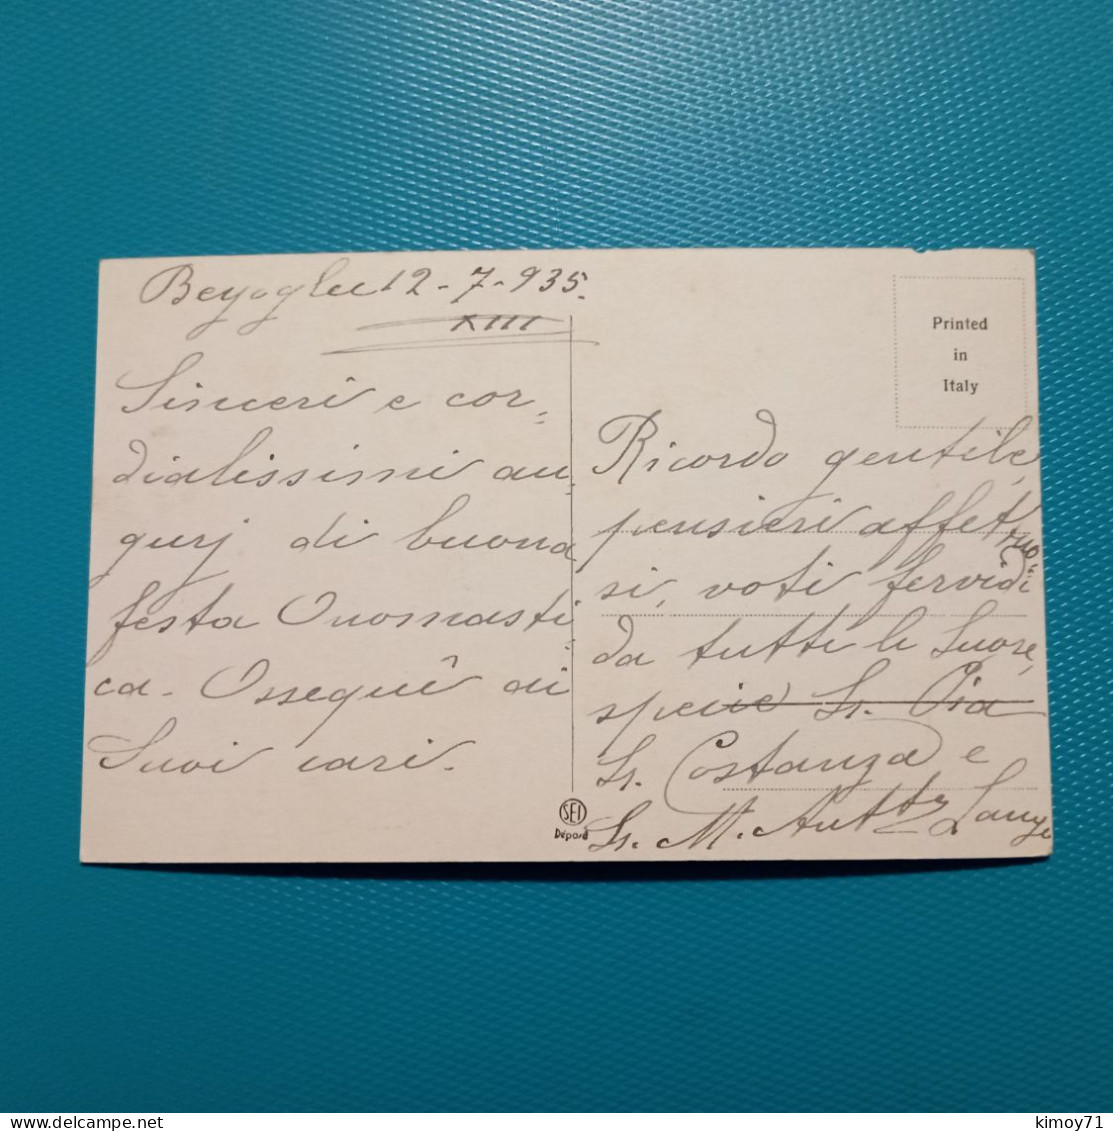 Beyoglu 12-7-935.
XIII
Sinceri e cor=
dialissimi au-
gurj di buona
festa Onomasti
ca. Ossequî ai
Suoi cari.
Printed
in
Italy
Ricordo gentile,
pensieri affettuo
si, voti fervidi
da tutte le Suore,
specie Sr. Pia
Sr. Costanza e
Sr. M.
SEI
Déposé
delcampe.net
kimoy71